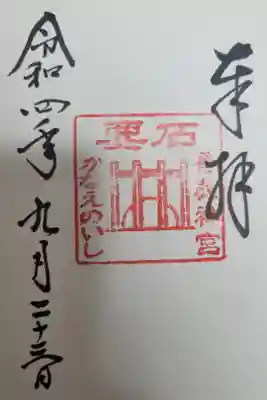 奉拝
神宮
かなえのいし
令和四年九月二十三日